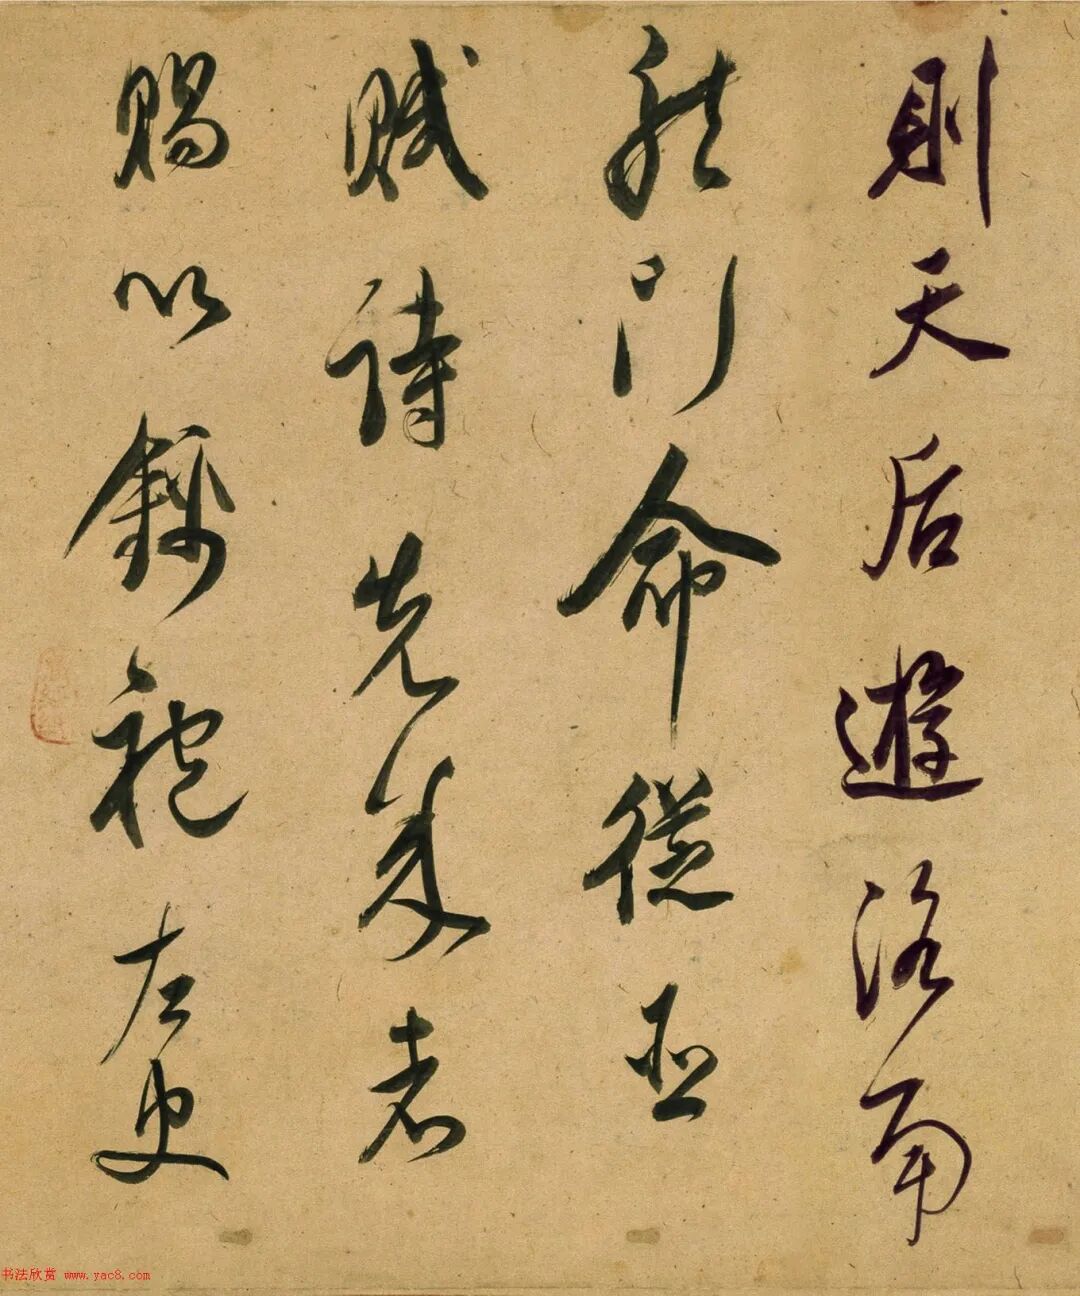 則天后遊洛南
龍門命從臣
賦詩先成者
賜以錦袍左史
书法欣赏 www.yac8.com